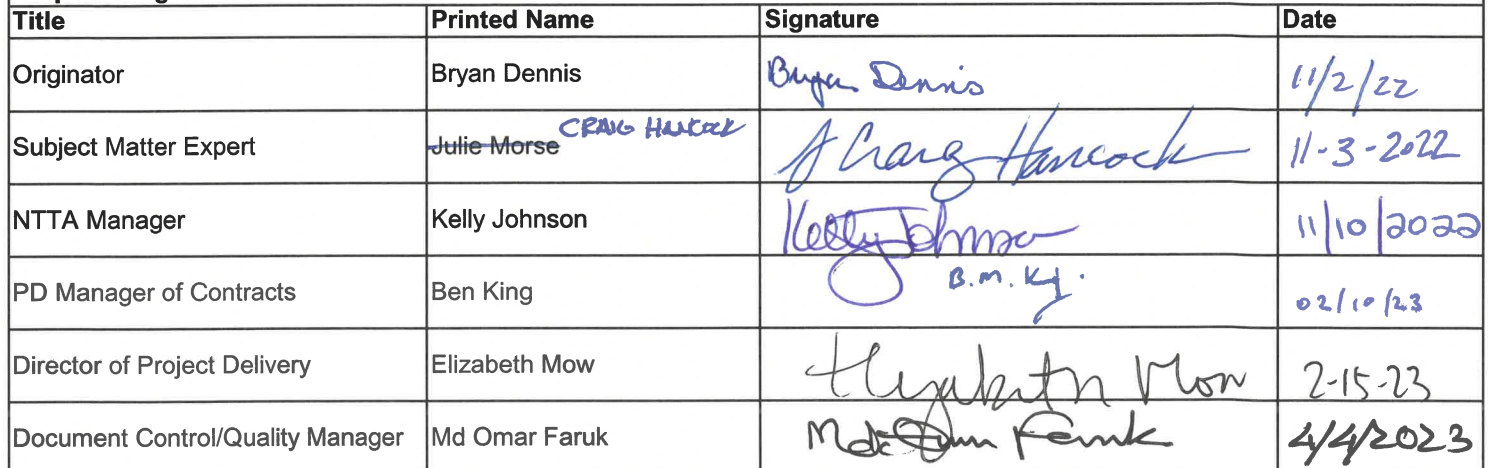 Title Printed Name Signature Date
Originator Bryan Dennis Bryan Dennis 11/2/22
Subject Matter Expert Julie Morse CRAIG HANCOCK J Craig Hancock 11-3-2022
NTTA Manager Kelly Johnson Kelly Johnson 11/10/2022
PD Manager of Contracts Ben King B.M. King. 02/10/23
Director of Project Delivery Elizabeth Mow Elizabeth Mow 2-15-23
Document Control/Quality Manager Md Omar Faruk Md Omar Faruk 4/4/2023